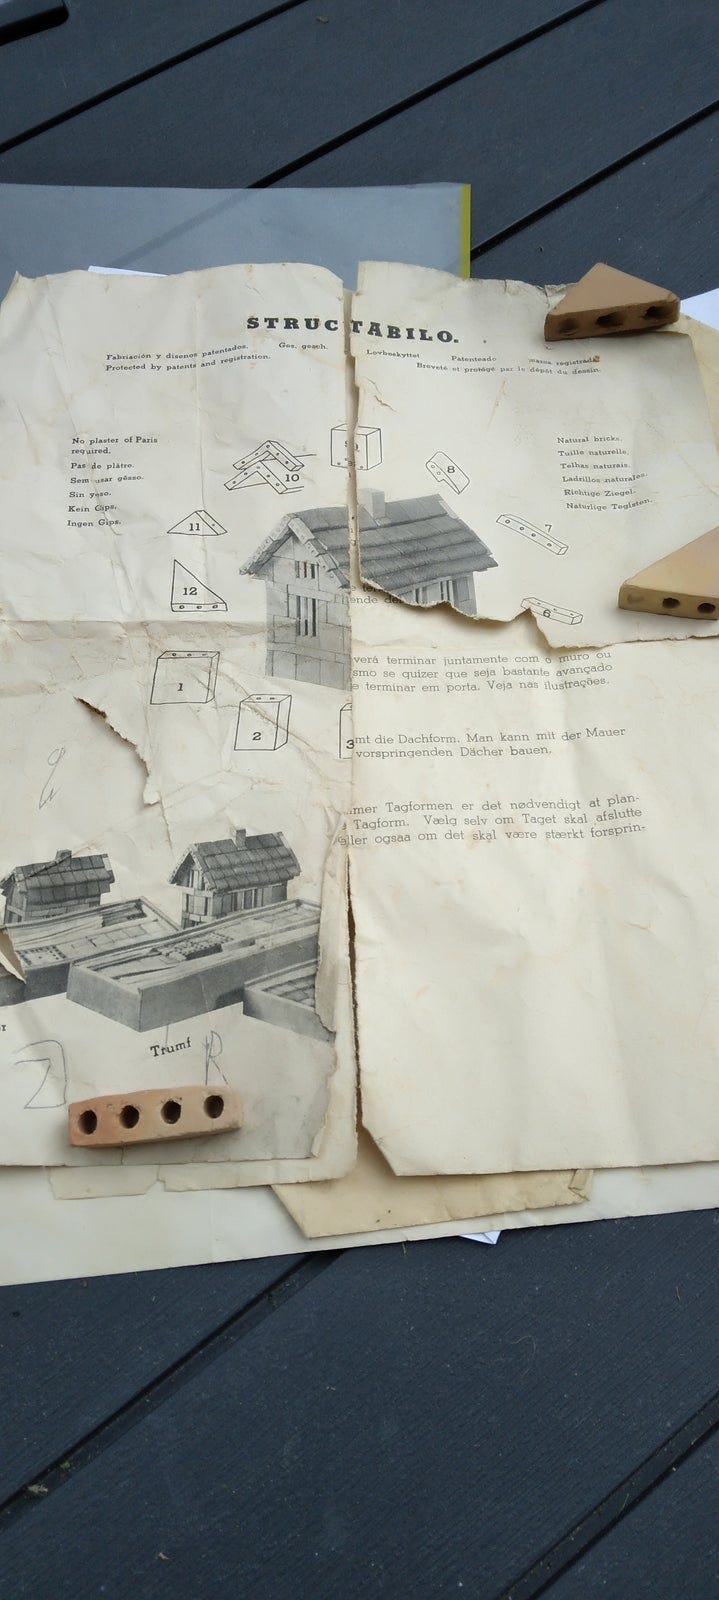 STRUC TABILO.
Fabriación y disenos patentados. Ges. gesch. Lovbeskyttet Patenteado marca registrada
Protected by patents and registration. Breveté et protégé par le dépôt du dessin.
No plaster of Paris
required.
Pas de plâtre.
Sem usar gêsso.
Sin yeso.
Kein Gips.
Ingen Gips.
Natural bricks.
Tuille naturelle.
Telhas naturais.
Ladrillos naturales.
Richtige Ziegel.
Naturlige Teglsten.
10
8
11
7
12
6
1
2
3
ende de
verá terminar juntamente com o muro ou
smo se quizer que seja bastante avançado
e terminar em porta. Veja nas ilustrações.
mt die Dachform. Man kann mit der Mauer
vorspringenden Dächer bauen.
mer Tagformen er det nødvendigt at plan-
Tagform. Vælg selv om Taget skal afslutte
eller ogsaa om det skal være stærkt forsprin-
Trumf
R